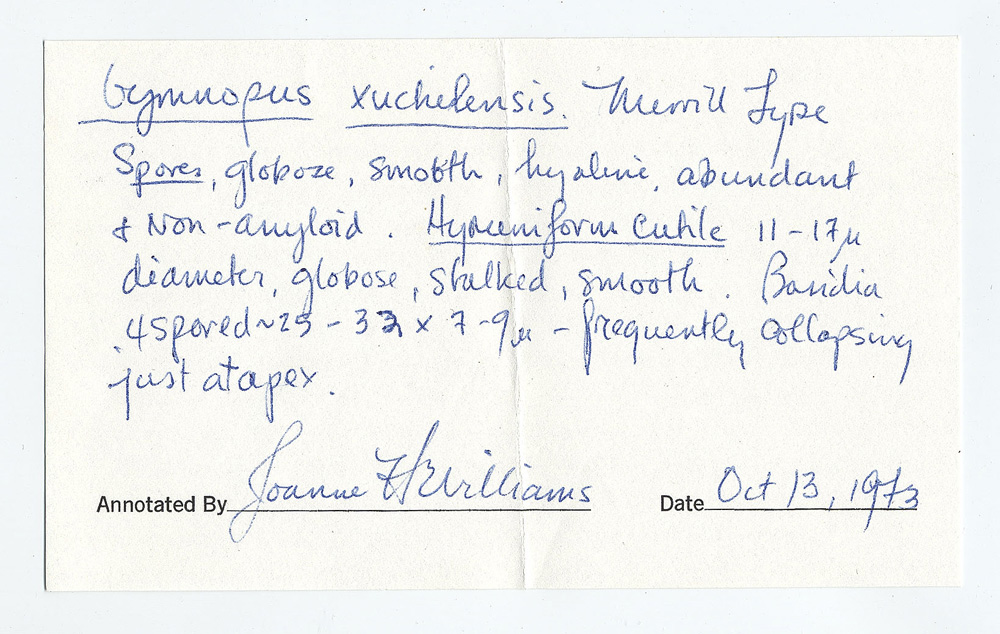 Gymnopus xuchilensis. Murrill Type
Spores, globose, smooth, hyaline, abundant
& Non-amyloid. Hymeniform Cutile 11-17μ
diameter, globose, stalked, smooth. Basidia
4spored ~25-32 x 7-9μ - frequently collapsing
just at apex.
Annotated By Joanne Williams Date Oct 13, 1973